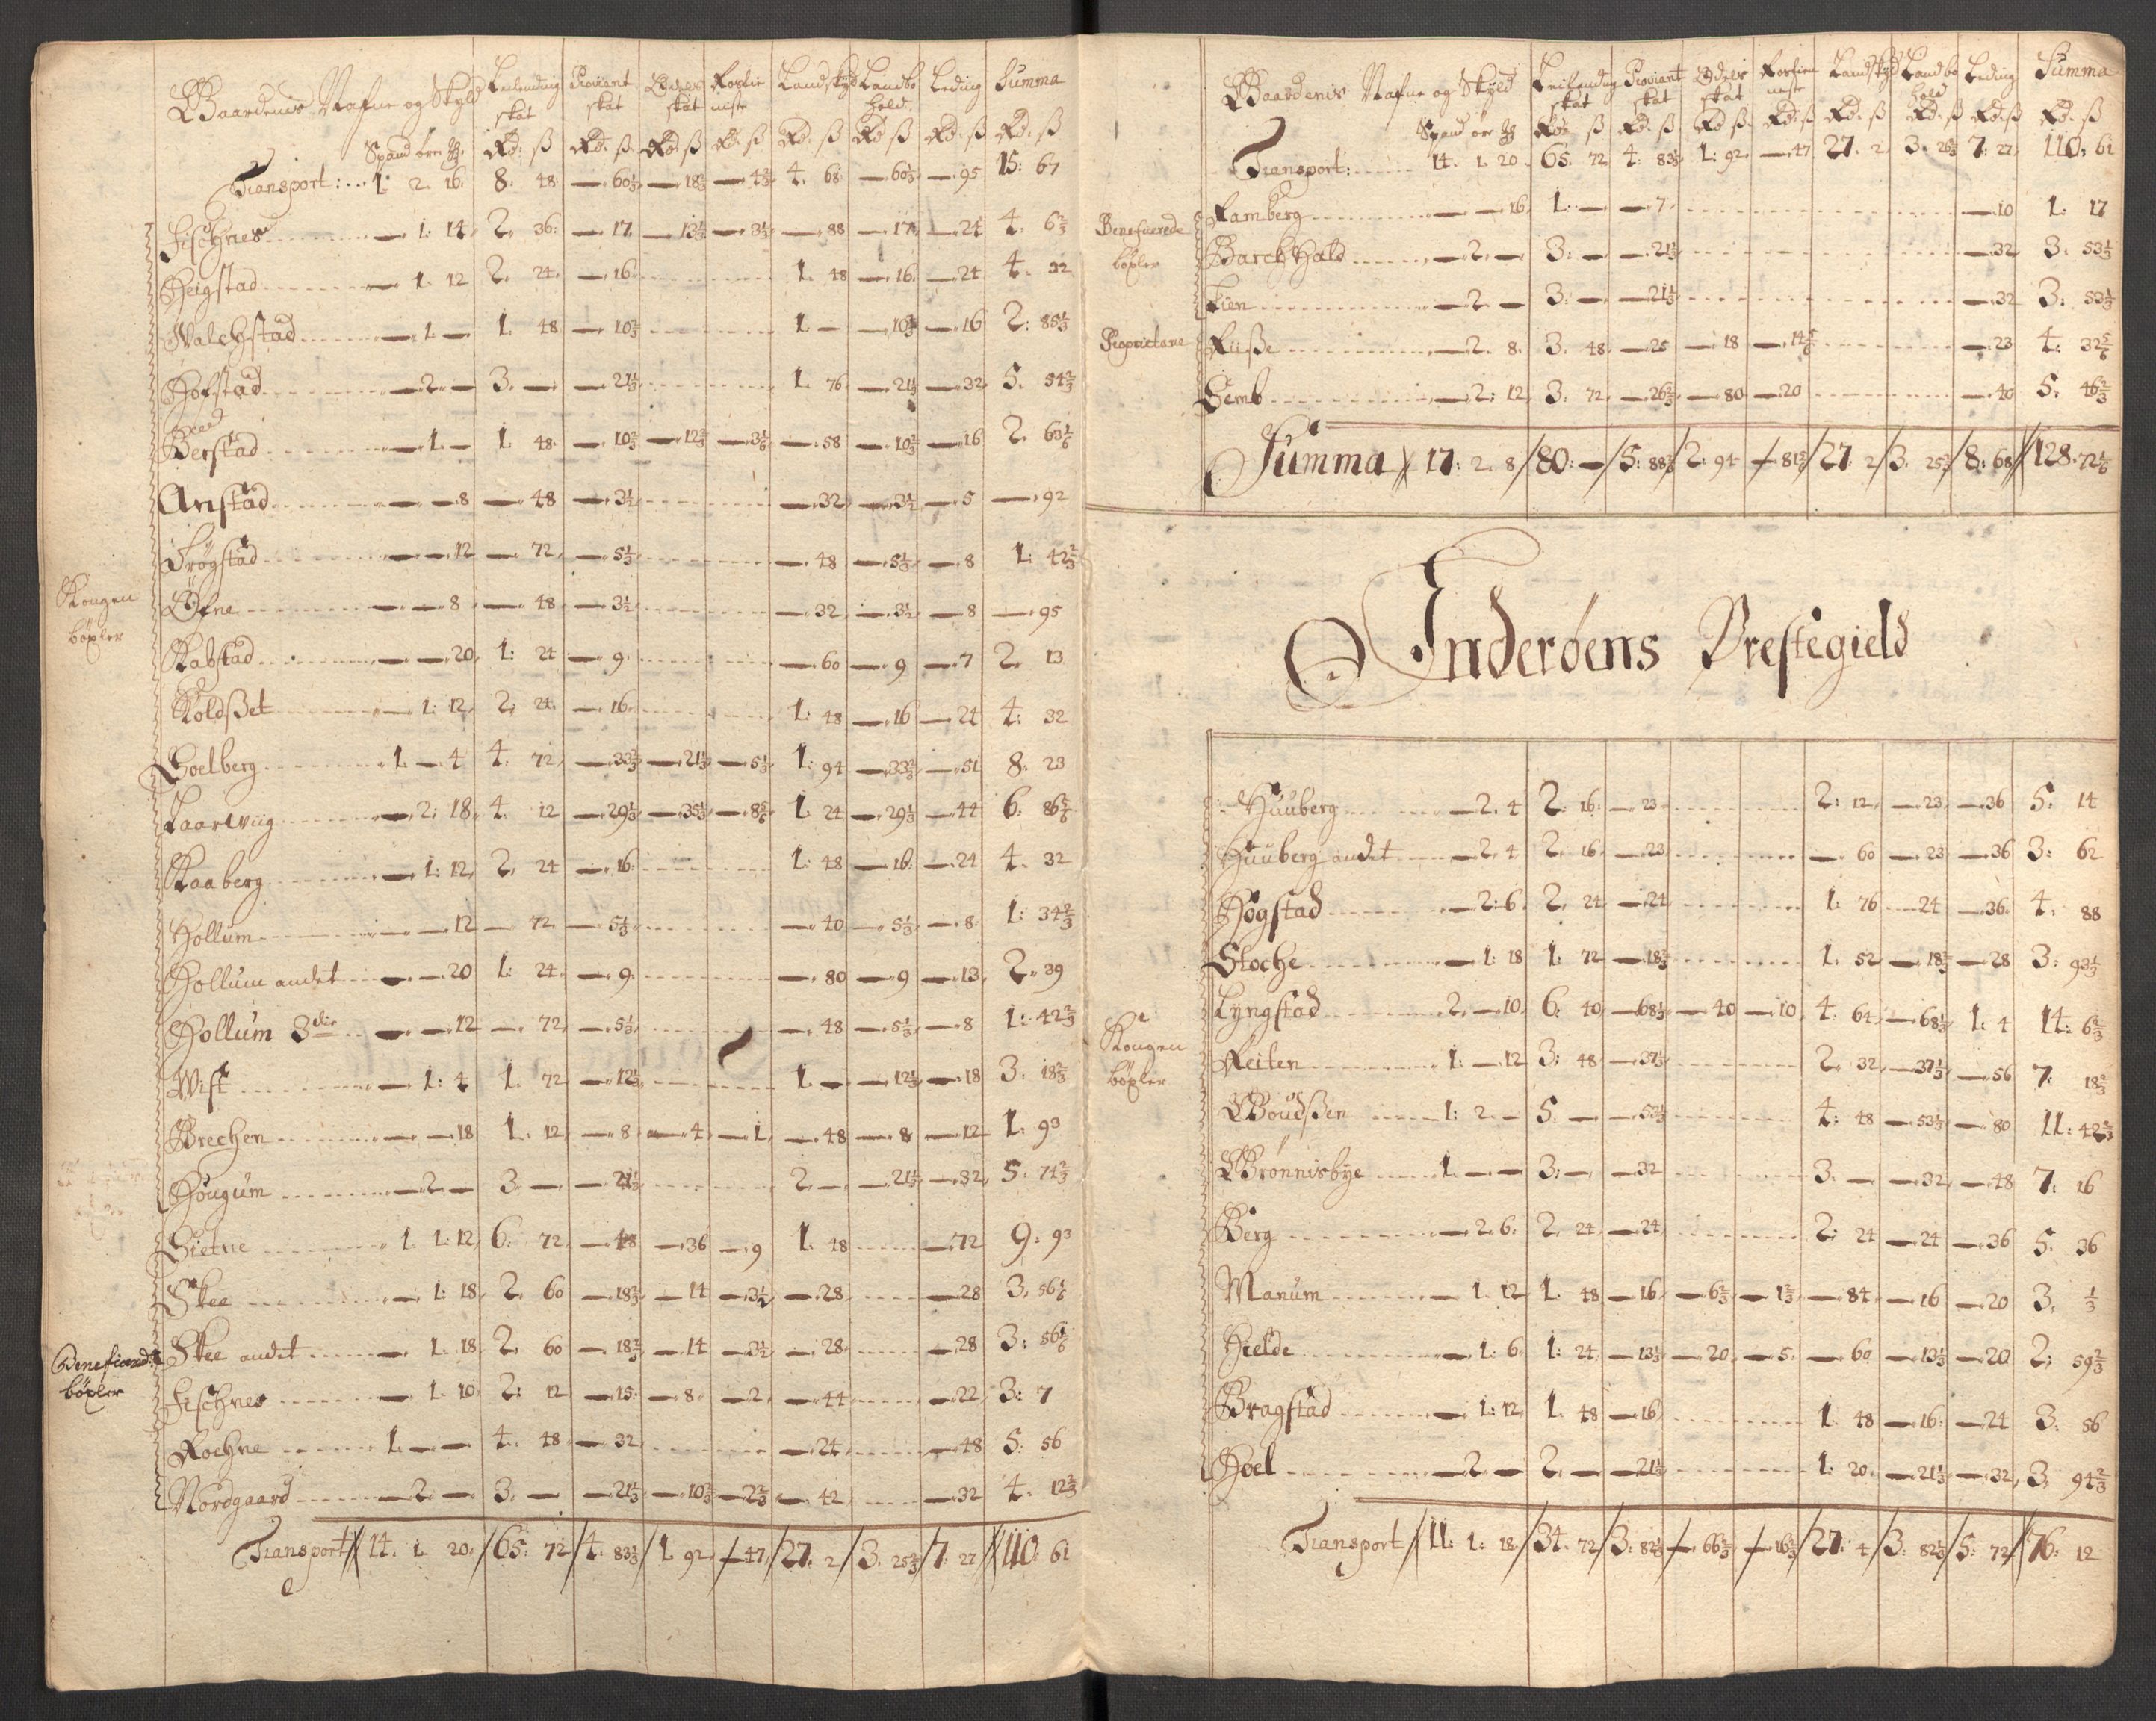 Gaardenis Nafne og Skyld Leilending skat Proviant skat Odels skat Rostieniste Landskyld Landbohold Leding Summa
Spand öre Rd: ß Rd. ß Rd ß Rd. ß Rd. ß Rd ß Rd. ß Rd. ß
Transport: 1. 2. 16. 8. 48 — 60⅓ — 18⅔ — 4⅔ 4. 68 — 60⅓ — 95 15: 67
Fischnes — 1. 14 2. 36: — 17 — 13⅓ — 3⅓ — 88 — 17 — 24 4. 6⅔
Heigstad — 1. 12 2. 24. — 16 1. 48 — 16. — 24 4. 32
Walchstad — 1 — 1. 48 — 10⅔ 1. — — 10⅔ — 16 2: 85⅓
Hofstad — 2 — 3. — — 21⅓ 1. 76 — 21⅓ — 32 5. 54⅔
Berstad — 1 — 1. 48. — 10⅔ — 12⅔ — 3⅙ — 58 — 10⅔ — 16 2. 63⅙
Anstad — — 8 — 48 — 3½ — 32 — 3½ — 5 — 92
Frögstad — — 12 — 72 — 5⅓ — 48 — 5⅓ — 8 1: 42⅔
Kongen böxler
Öfne — — 8 — 48 — 3½ — 32 — 3½ — 8 — 95
Kabstad — — 20 1: 24 — 9 — 60 — 9 — 7 2. 13
Koldßet — 1: 12 2. 24. — 16. 1. 48 — 16 — 24 4: 32
Soelberg 1. — 4 4. 72 — 33⅔ — 21⅓ — 5⅓ 1: 94 — 33⅔ — 51 8. 23
Kaarviig — 2: 18 4. 12 — 29⅓ — 35⅓ — 8⅚ 1. 24 — 29⅓ — 44 6. 86⅚
Kaaberg — 1: 12 2. 24 — 16. 1: 48 — 16. — 24 4. 32
Hollum — — 12 — 72 — 5⅓ — 40 — 5⅓ — 8. 1: 34⅔
Hollum andet — — 20 1: 24. — 9. — 80 — 9 — 13 2. 39
Hollum 3die — — 12 — 72 — 5⅓ — 48 — 5⅓ — 8 1: 42⅔
Wist — 1: 4 1. 72 — 12⅓ 1. — — 12⅓ — 18 3. 18⅔
Brechen — — 18 1. 12 — 8 — 4 — 1 — 48 — 8 — 12 1: 93
Hougum — 2 — 3. — — 21⅓ 2. — — 21⅓ — 32 5. 74⅔
Sietne 1. 1: 12 6. 72 — 48 — 36 — 9 1. 48 — 72 9. 93
Skee — 1: 18 2. 60 — 18⅔ — 14 — 3½ — 28 — 28 3. 56⅙
Beneficerd: böxler
Skee andet — 1. 18 2. 60 — 18⅔ — 14 — 3½ — 28 — 28 3: 56⅙
Fischnes — 1. 10 2: 12 — 15. — 8. — 2. — 44 — 22 3: 7
Rochne 1. — — 4. 48 — 32 — 24 — 48 5: 56
Nordgaard — 2 — 3. — — 21⅓ — 10⅔ — 2⅔ — 42 — 32 4. 12⅔
Transport 14. 1. 20. 65. 72 4. 83⅓ 1. 92 — 47 27. 2 3. 25⅔ 7. 27 110. 61
Gaardenis Nafne og Skyld Leilending skat Proviant skat Odels skat Rostieniste Landskyld Landbohold Leding Summa
Spand öre Rd: ß Rd. ß Rd ß Rd. ß Rd. ß Rd. ß Rd. ß Rd. ß
Transport: 14. 1. 20. 65. 72 4: 83⅓ 1: 92. — 47 27. 2. 3. 26⅔ 7: 27 110. 61
Beneficerede böxler
Ramberg — — 16 1. — — 7 — 10 1. 17
Barchhald — 2 — 3: — — 21⅓ — 32 3. 53⅓
Lien — 2 — 3: — — 21⅓ — 32 3: 53⅓
Proprietarie
Rüße — 2. 8. 3. 48 — 25 — 18 — 14⅚ — 23 4: 32⅚
Semb — 2: 12 3. 72 — 26⅔ — 80 — 20 — 40 5: 46⅔
Summa 17: 2. 8 80: — 5: 88⅓ 2: 94 — 81⅚ 27. 2 3. 25⅔ 8: 68 128. 72⅙
Inderöens Prestegield
Huuberg — 2. 4 2: 16: — 23 2: 12 — 23 — 36 5. 14
Huuberg andet — 2. 4 2. 16 — 23 — 60 — 23 — 36 3: 62
Högstad — 2: 6. 2. 24 — 24 1. 76 — 24 — 36. 4. 88
Stoche — 1. 18 1. 72 — 18⅔ 1. 52 — 18⅔ — 28 3: 93⅓
Lyngstad 2. — 10 6. 40 — 68⅓ — 40 — 10 4. 64 — 68⅓ 1: 4 14: 6⅔
Kongen böxler
Reiten 1. — 12 3: 48 — 37⅓ 2. 32 — 37⅓ — 56 7. 18⅔
Goudßen 1: 2. — 5. — — 53⅓ 4: 48 — 53⅓ — 80 11: 42⅔
Grönnisbye 1. — — 3. — — 32 3. — — 32 — 48 7: 16
Berg — 2. 6. 2. 24 — 24 2: 24 — 24 — 36 5. 36
Manum — 1. 12 1. 48 — 16 — 6⅔ — 1⅔ — 84 — 16 — 20 3. ⅓
Hielde — 1: 6. 1. 24 — 13⅓ — 20 — 5. — 60 — 13⅓ — 20 2: 59⅔
Bragstad — 1: 12 1. 48 — 16 1. 48 — 16. — 24 3. 56
Hoel — 2. — 2. — — 21⅓ 1. 20. — 21⅓ — 32 3. 94⅔
Transport 11. 1. 18 34. 72 3: 82⅓ — 66⅔ — 16⅔ 27. 4 3: 82⅓ 5: 72 76: 12